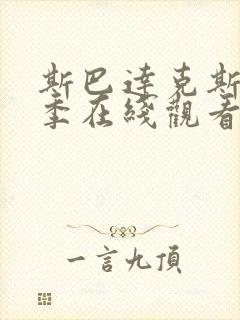 斯巴達克斯
季在綫觀看
一言九頂